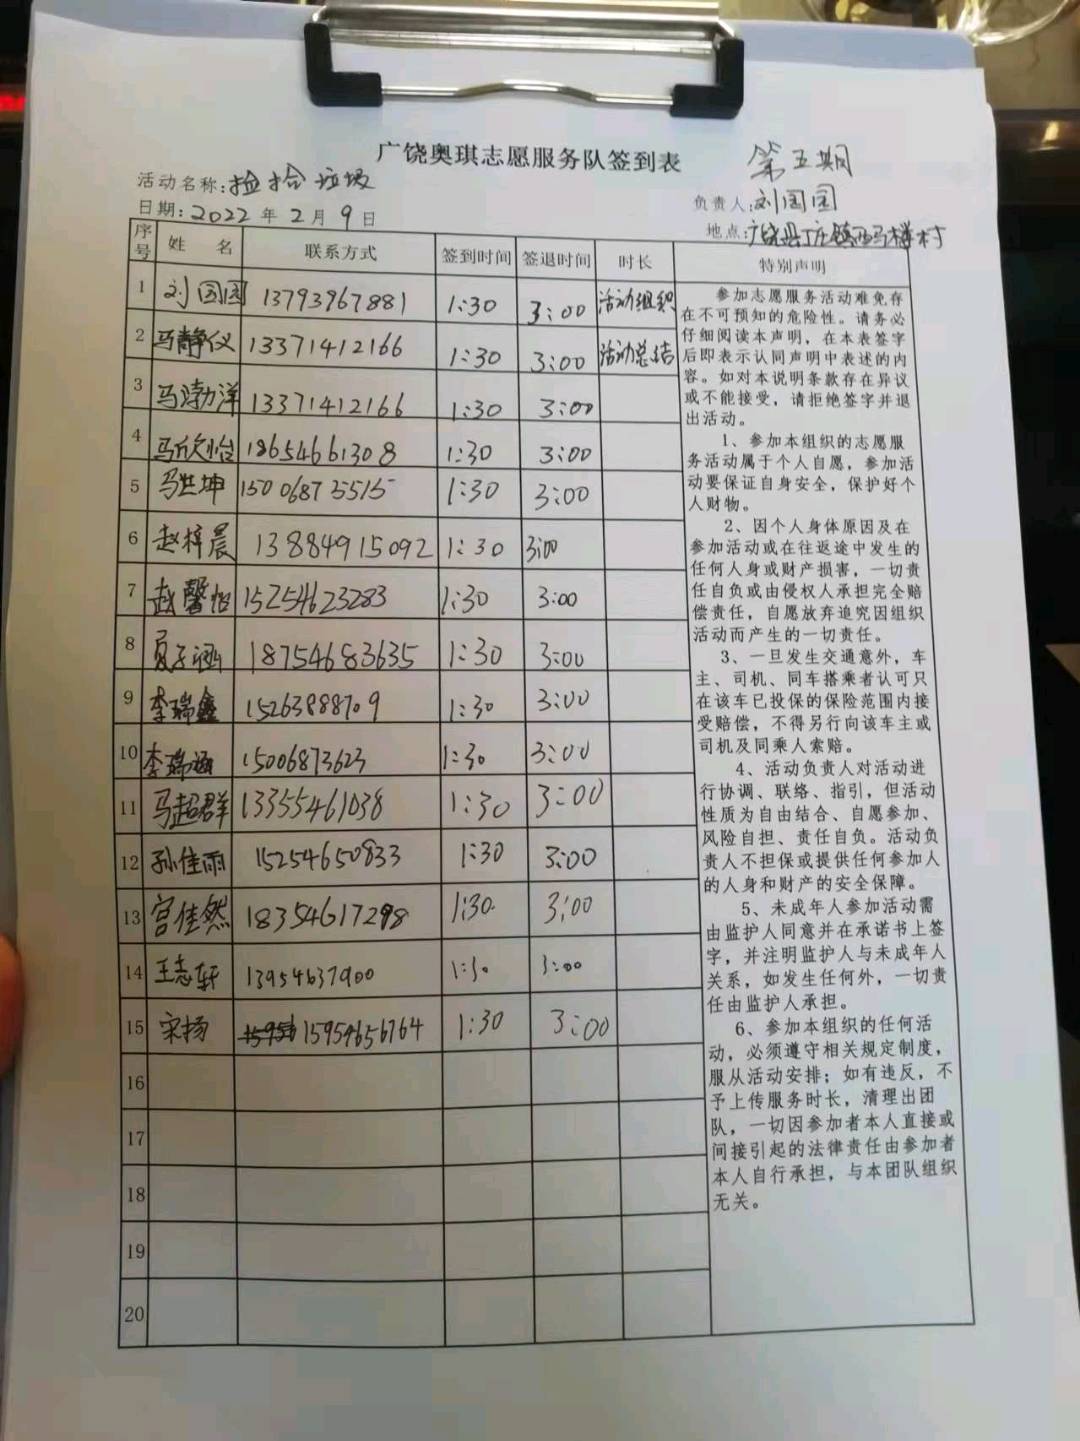 广饶奥琪志愿服务队签到表
第五期
活动名称:捡拾垃圾
负责人:刘园园
日期:2022年2月9日
地点:广饶县丁庄镇西马楼村
序号 姓名 联系方式 签到时间 签退时间 时长 特别声明
1 刘园园 13793967881 1:30 3:00 活动组织
2 马静仪 13371412166 1:30 3:00 活动总结
3 马渤洋 13371412166 1:30 3:00
4 马欣怡 18654661308 1:30 3:00
5 马世坤 150068735515 1:30 3:00
6 赵梓晨 13884915092 1:30 3:00
7 赵馨怡 15254623283 1:30 3:00
8 夏子涵 18754683635 1:30 3:00
9 李瑞鑫 15263888709 1:30 3:00
10 李瑞涵 15006873623 1:30 3:00
11 马超群 13355461038 1:30 3:00
12 孙佳雨 15254650833 1:30 3:00
13 宫佳然 18354617298 1:30 3:00
14 王志轩 13954637900 1:30 3:00
15 宋扬 15954656764 1:30 3:00
16
17
18
19
20
参加志愿服务活动难免存
在不可预知的危险性。请务必
仔细阅读本声明，在本表签字
后即表示认同声明中表述的内
容。如对本说明条款存在异议
或不能接受，请拒绝签字并退
出活动。
1、参加本组织的志愿服
务活动属于个人自愿，参加活
动要保证自身安全，保护好个
人财物。
2、因个人身体原因及在
参加活动或在往返途中发生的
任何人身或财产损害，一切责
任自负或由侵权人承担完全赔
偿责任，自愿放弃追究因组织
活动而产生的一切责任。
3、一旦发生交通意外，车
主、司机、同车搭乘者认可只
在该车已投保的保险范围内接
受赔偿，不得另行向该车主或
司机及同乘人索赔。
4、活动负责人对活动进
行协调、联络、指引，但活动
性质为自由结合、自愿参加、
风险自担、责任自负。活动负
责人不担保或提供任何参加人
的人身和财产的安全保障。
5、未成年人参加活动需
由监护人同意并在承诺书上签
字，并注明监护人与未成年人
关系，如发生任何外，一切责
任由监护人承担。
6、参加本组织的任何活
动，必须遵守相关规定制度，
服从活动安排；如有违反，不
予上传服务时长，清理出团
队，一切因参加者本人直接或
间接引起的法律责任由参加者
本人自行承担，与本团队组织
无关。